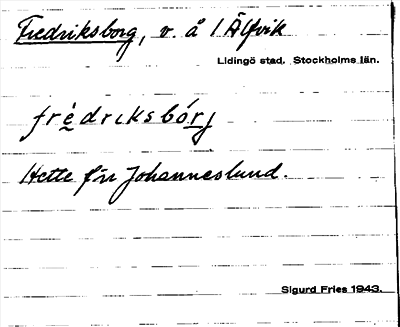 Fredriksborg, v. å 1 Älfvik
Lidingö stad. Stockholms län.
frédrıksbórj
Hette förr Johanneslund.
Sigurd Fries 1943.